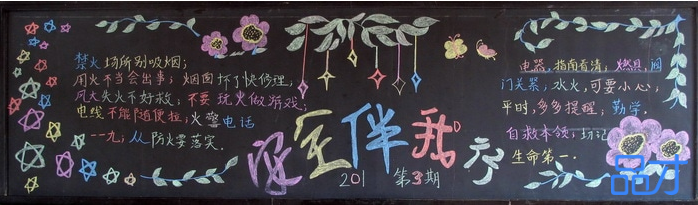 禁火场所别吸烟；
用火不当会出事；烟囱坏了快修理，
风大失火不好救；不要玩火做游戏；
电线不能随便拉；火警电话
一一九；从防火要落实.
安全伴我行
201 第3期
电器，指南看清，燃具，阀
门关紧，水火，可要小心，
平时，多多提醒，勤学，
自救本领；切记
生命第一.
品才